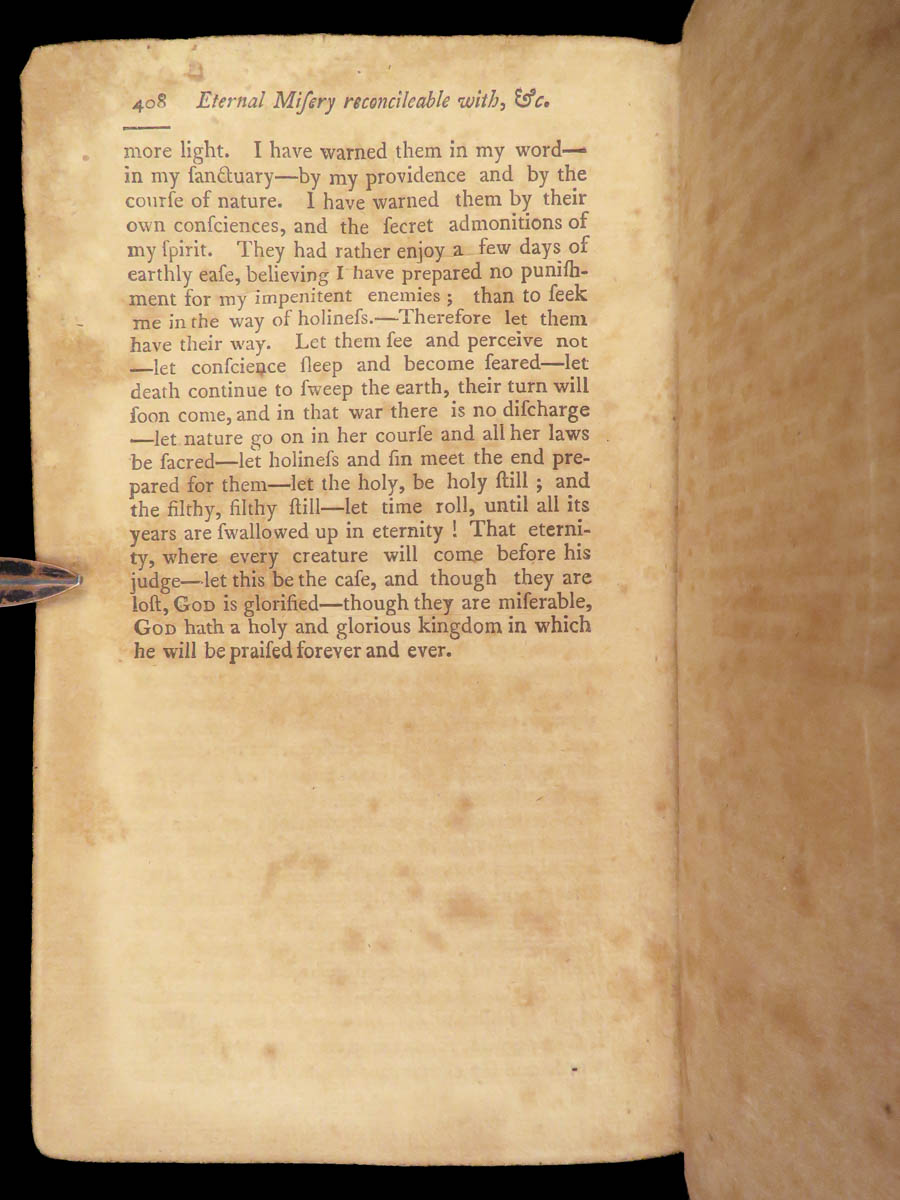 408 Eternal Miſery reconcileable with, &c.
more light. I have warned them in my word—
in my ſanctuary—by my providence and by the
courſe of nature. I have warned them by their
own conſciences, and the ſecret admonitions of
my ſpirit. They had rather enjoy a few days of
earthly eaſe, believing I have prepared no puniſh-
ment for my impenitent enemies ; than to ſeek
me in the way of holineſs.—Therefore let them
have their way. Let them ſee and perceive not
—let conſcience ſleep and become ſeared—let
death continue to ſweep the earth, their turn will
ſoon come, and in that war there is no diſcharge
—let nature go on in her courſe and all her laws
be ſacred—let holineſs and ſin meet the end pre-
pared for them—let the holy, be holy ſtill ; and
the filthy, filthy ſtill—let time roll, until all its
years are ſwallowed up in eternity ! That eterni-
ty, where every creature will come before his
judge—let this be the caſe, and though they are
loſt, GOD is glorified—though they are miſerable,
GOD hath a holy and glorious kingdom in which
he will be praiſed forever and ever.